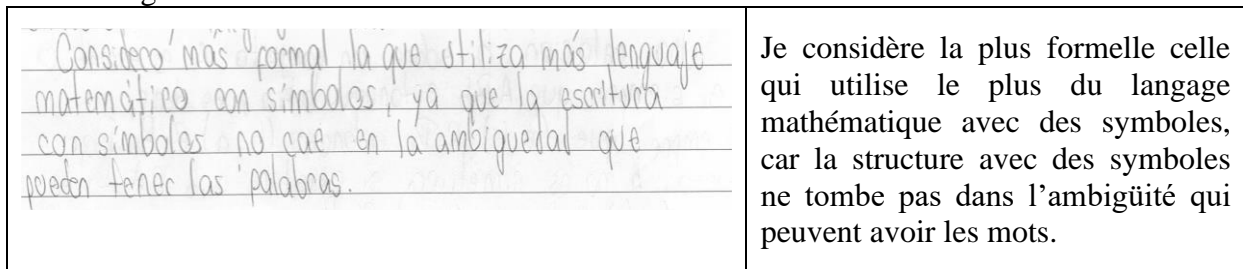 Considero más formal la que utiliza más lenguaje
matemático con símbolos, ya que la escritura
con símbolos no cae en la ambiguedad que
pueden tener las palabras.
Je considère la plus formelle celle
qui utilise le plus du langage
mathématique avec des symboles,
car la structure avec des symboles
ne tombe pas dans l'ambigüité qui
peuvent avoir les mots.